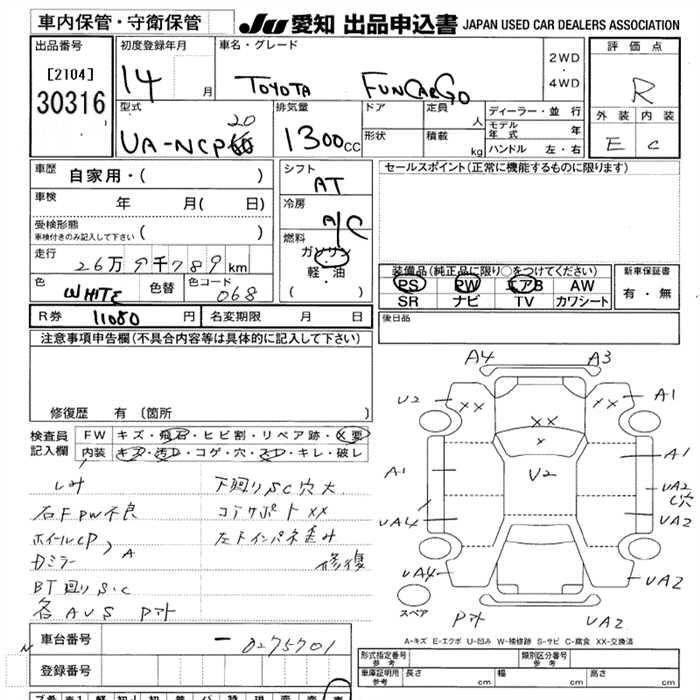 車内保管・守衛保管
JU 愛知 出品申込書 JAPAN USED CAR DEALERS ASSOCIATION
出品番号 初度登録年月 車名・グレード 2WD・4WD 評価点
[2104] 14 月 TOYOTA FUNCARGO R
30316 型式 排気量 ドア 定員 人 ディーラー・並行 外装 内装
UA-NCP20 1300cc 形状 積載 kg モデル年式 年 E C
ハンドル 左・右
車歴 自家用・( ) シフト AT セールスポイント(正常に機能するものに限ります)
車検 年 月( 日) 冷房 A/C
受検形態
車検付きのみ記入して下さい( ) 燃料 ガソリン・軽・油
走行 26万9千789km ( ) 装備品(純正品に限り○をつけてください) 新車保証書
色 WHITE 色替 色コード 068 PS PW エアB AW 有・無
SR ナビ TV カワシート
R券 11080 円 名変期限 月 日 後日品
注意事項申告欄(不具合内容等は具体的に記入して下さい)
修復歴 有 (箇所 )
検査員 FW キズ・飛石・ヒビ割・リペア跡・X要
記入欄 内装 キズ・汚レ・コゲ・穴・スレ・キレ・破レ
シミ 下廻りS.C穴大
右FPW不良 コアサポートXX
ホイールCP 左下インパネ歪み
Dミラー A 修復
BT廻りS.C
各AUS Pナト
A4 A3
U2 XX XX XX A1
X
A1 V2 A1
UA2
C穴
UA4 UA2
UA4 UA2
スペア Pナト UA2
A-キズ E-エクボ U-凹み W-補修跡 S-サビ C-腐食 XX-交換済
車台番号 - 0275701
登録番号
形式指定番号 参考 類別区分番号 参考
車庫証明用 参考 長さ cm 幅 cm 高さ cm